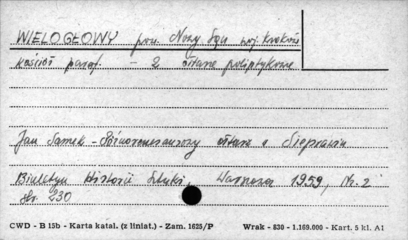 WIELOGŁOWY pow. Nowy Sącz woj. Kraków
kościół paraf. - 2 ołtarze poliptykowe
Jan Samek - Późnorenesansowy ołtarz w Sieprawiu
Biuletyn Historii Sztuki, Warszawa 1959, Nr. 2
str. 230
CWD - B 15b - Karta katal. (z liniat.) - Zam. 1625/P Wrak - 830 - 1.169.000 - Kart. 5 kl. A1